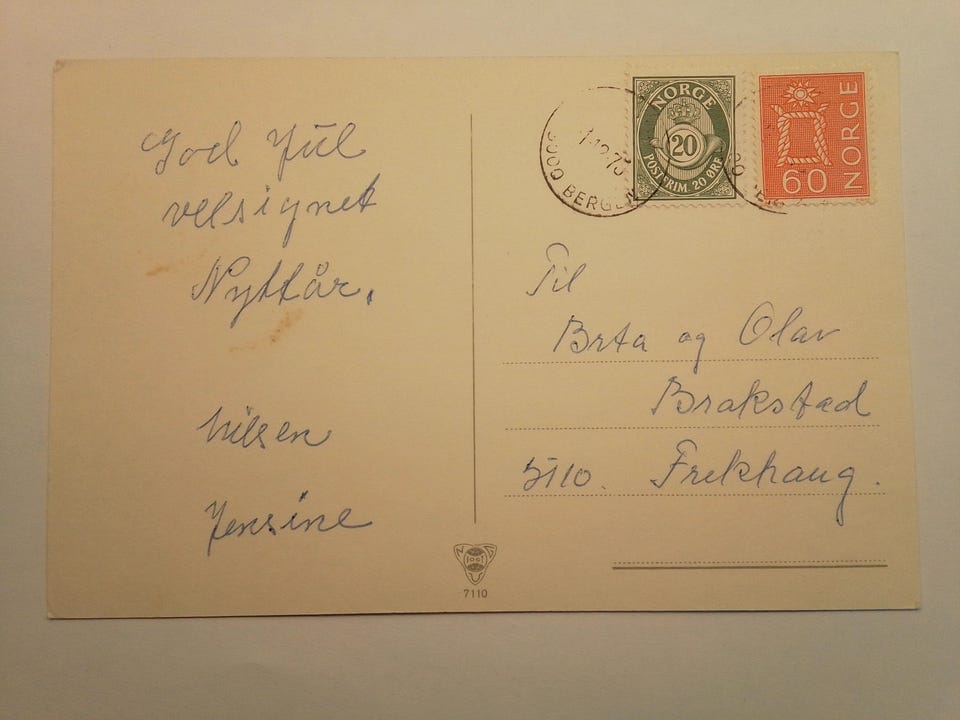 God Jül
velsignet
Nyttår.
hilsen
Jensine
NORGE
20
POSTFRIM. 20 ØRE
NORGE
60
5000 BERGEN
Til
Brta og Olav
Brakstad
5110. Frekhaug.
7110